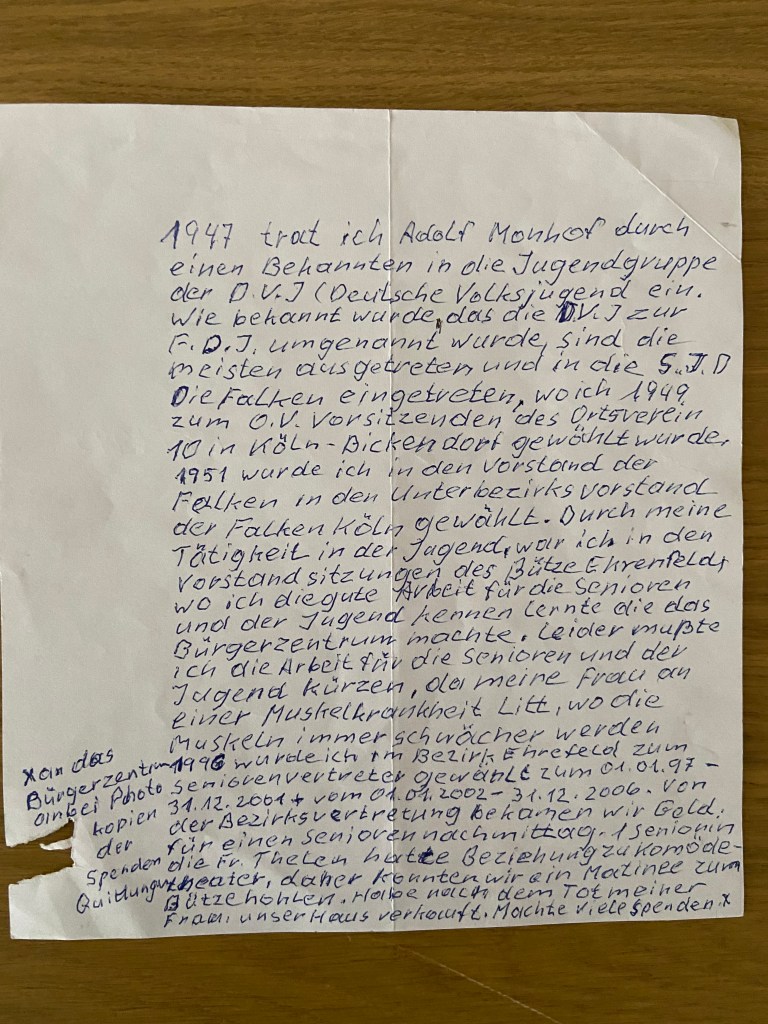 1947 trat ich Adolf Monhof durch
einen Bekannten in die Jugendgruppe
der D.V.J (Deutsche Volksjugend ein.
Wie bekannt wurde, das die D.V.J zur
F.D.J. umgenannt wurde, sind die
meisten ausgetreten und in die S.J.D
Die Falken eingetreten, wo ich 1949
zum O.V. Vorsitzenden des Ortsverein
10 in Köln-Bickendorf gewählt wurde,
1951 wurde ich in den Vorstand der
Falken in den Unterbezirksvorstand
der Falken Köln gewählt. Durch meine
Tätigkeit in der Jugend, war ich in den
Vorstand sitzungen des Bütze Ehrenfeld,
wo ich die gute Arbeit für die Senioren
und der Jugend kennen lernte die das
Bürgerzentrum machte. Leider mußte
ich die Arbeit für die Senioren und der
Jugend kürzen, da meine Frau an
einer Muskelkrankheit Litt, wo die
Muskeln immer schwächer werden
1996 wurde ich im Bezirk Ehrefeld zum
Seniorenvertreter gewählt zum 01.01.97-
31.12.2001 + vom 01.01.2002-31.12.2006. Von
der Bezirksvertretung bekamen wir Geld,
für einen Seniorennachmittag. 1 Seniorin
die Fr. Thelen hatte Beziehung zu Komöde-
theater, daher konnten wir ein Matinee zum
Bütze hohlen. Habe nach dem Tot meiner
Frau, unser Haus verkauft. Machte viele Spenden x
x an das
Bürgerzentrum
anbei Photo
kopien
der
Spenden
Quittungen